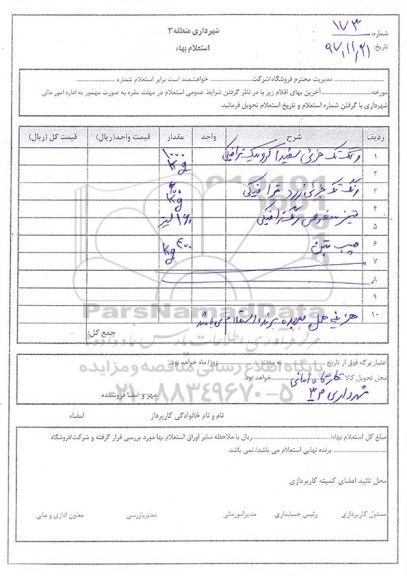 شهرداری منطقه ۳
استعلام بهاء
شماره: ۱۷۳
تاریخ: ۹۷/۱۱/۲۱
مدیریت محترم فروشگاه/شرکت خواهشمند است برابر استعلام شماره
مورخه آخرین بهای اقلام زیر با در نظر گرفتن شرایط عمومی استعلام در مهلت مقرره به صورت ممهور به اداره امور مالی
شهرداری با گرفتن شماره استعلام و تاریخ استعلام تحویل فرمائید.
ردیف شرح واحد مقدار قیمت واحد(ریال) قیمت کل (ریال)
۱ رنگ تک جزئی سفید اکرولیک ترافیکی ۱۰۰۰ Kg
۲
۳ رنگ تک جزئی زرد ترافیکی ۲۰۰ Kg
۴ تینر مخصوص رنگ ترافیکی
۵
۶ چسب بتن Kg
۷
۸
۹
۱۰ هزینه حمل بعهده برنده استعلام می باشد
جمع کل:
ParsNamadData
پایگاه اطلاع رسانی مناقصه و مزایده
۰۲۱-۸۸۳۴۹۶۷۰-۵
اعتبار برگه فوق از تاریخ به مدت روز/ماه خواهد بود.
محل تحویل کالا: کارگاه امانی خواهد بود.
شهرداری م ۳
مهر و امضا فروشنده
نام و نام خانوادگی کاربرداز امضاء
مبلغ کل استعلام بهاء: ریال با ملاحظه سایر اوراق استعلام بها مورد بررسی قرار گرفته و شرکت/فروشگاه
برنده نهایی استعلام می باشد/ نمی باشد.
محل تائید اعضای کمیته کاربردازی
مسئول کاربردازی رئیس حسابداری مدیرامورمالی مدیربازرسی معاون اداری و مالی